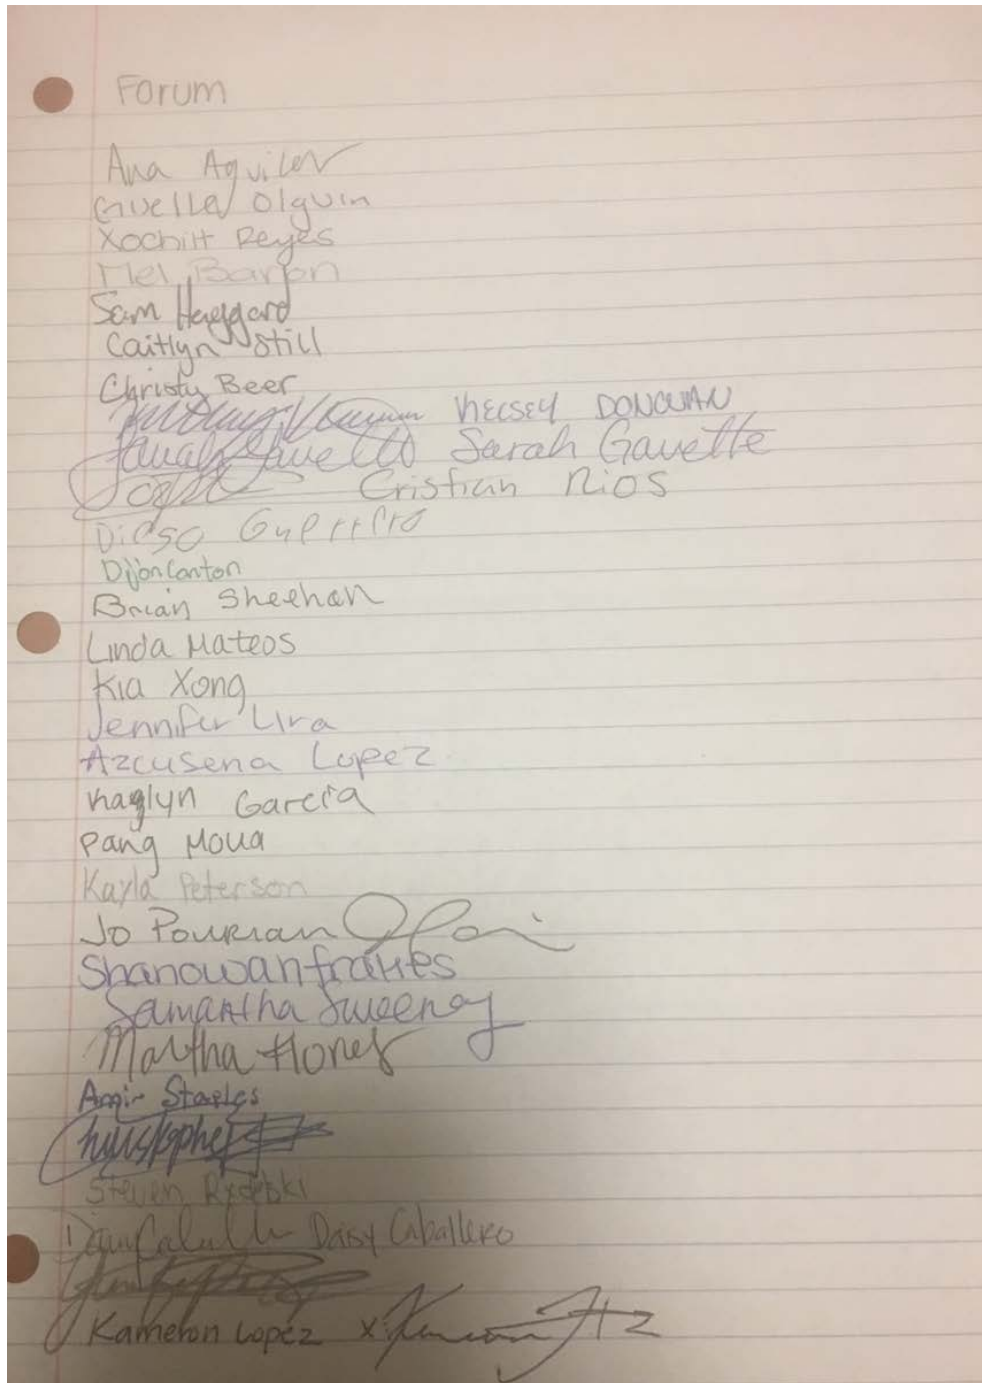 Forum
Ana Aguilar
Giselle Olguin
Xochilt Reyes
Mel Barron
Sam Haggard
Caitlyn Still
Christy Beer
Kelsey Donovan
Sarah Gavette Sarah Gavette
Cristian Rios
Diego Guerrero
Dijon Canton
Brian Sheehan
Linda Mateos
Kia Xong
Jennifer Lira
Azcusena Lopez
Kaylyn Garcia
Pang Moua
Kayla Peterson
Jo Pourian
Shanowan frakes
Samantha Sweeney
Martha Flores
Amir Staples
Christopher
Steven
Daisy Caballero
Kameron Lopez x